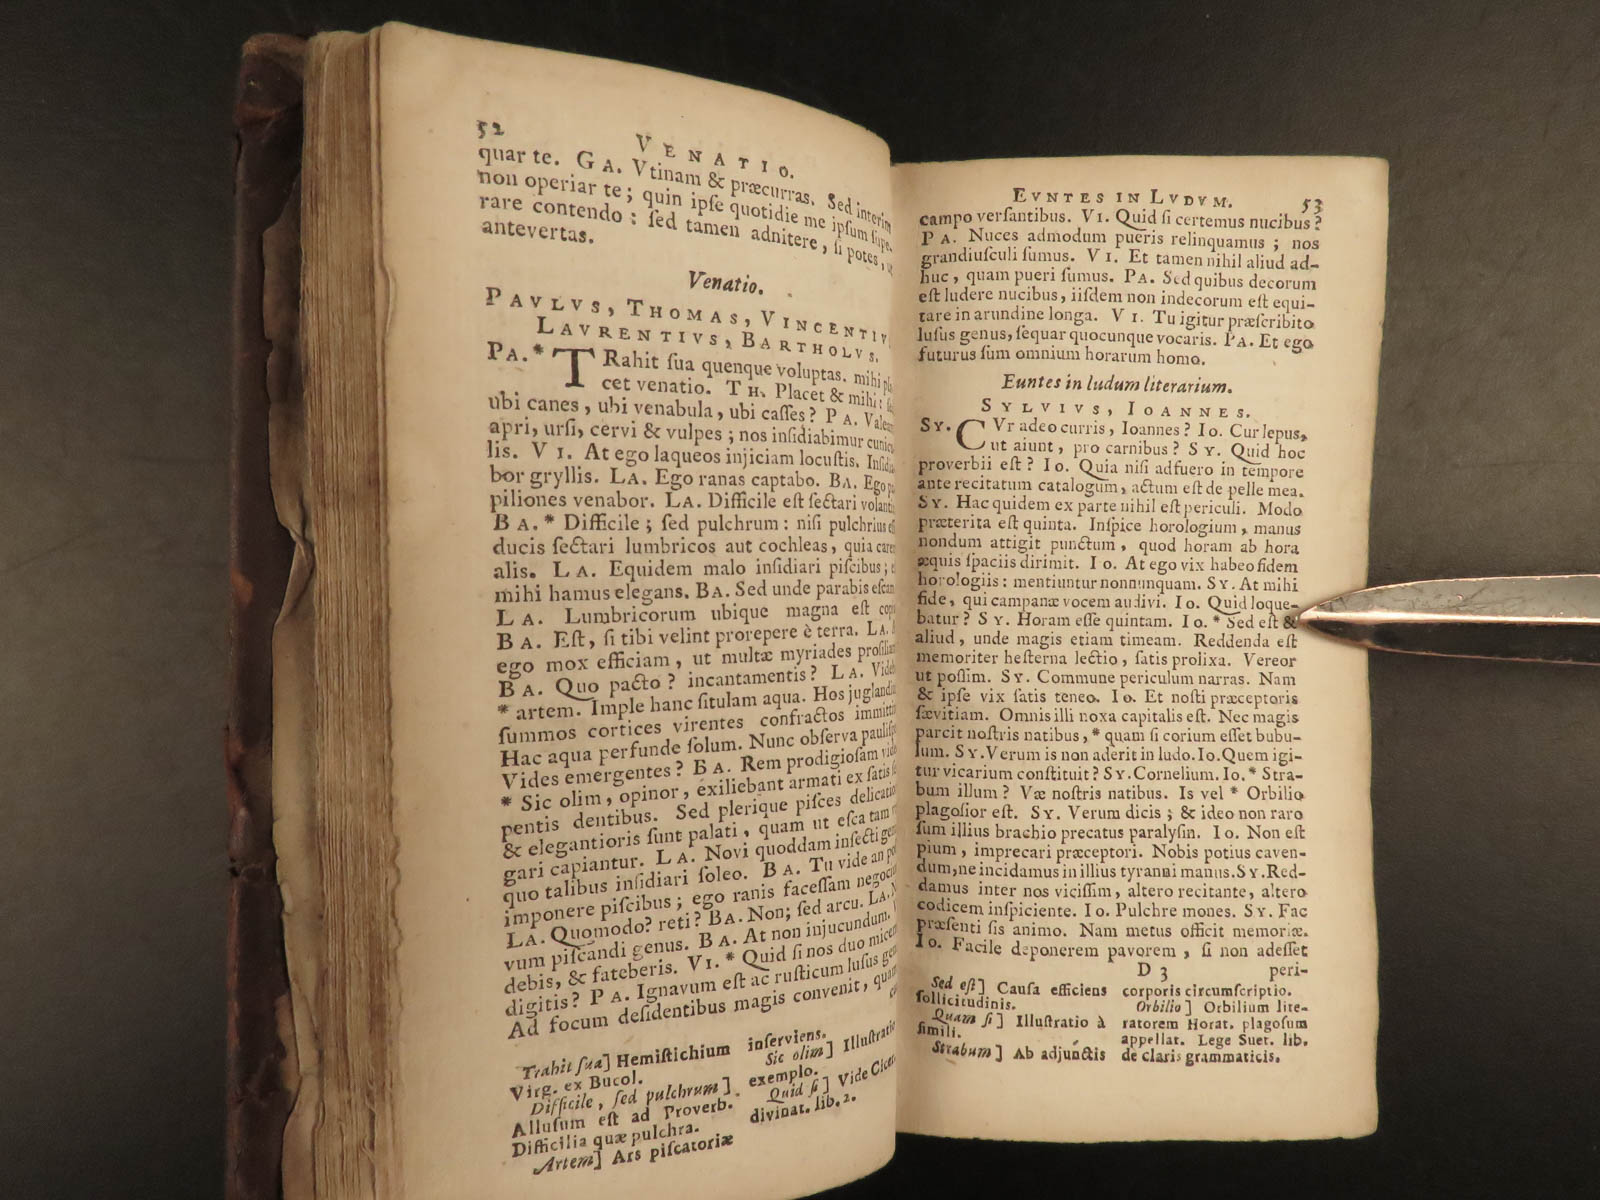 52
VENATIO.
quar te. GA. Vtinam & præcurras. Sed interim
non operiar te; quin ipſe quotidie me ipſum ſupe-
rare contendo: ſed tamen adnitere, ſi potes,
antevertas.
Venatio.
PAVLVS, THOMAS, VINCENTIV
LAVRENTIVS, BARTHOLVS.
PA.* TRahit ſua quenque voluptas. mihi
cet venatio. TH. Placet & mihi:
ubi canes, ubi venabula, ubi caſſes? PA.
apri, urſi, cervi & vulpes; nos inſidiabimur
lis. VI. At ego laqueos injiciam locuſtis.
bor gryllis. LA. Ego ranas captabo. BA. Ego
piliones venabor. LA. Difficile eſt ſectari
BA.* Difficile; ſed pulchrum: niſi pulchrius
ducis ſectari lumbricos aut cochleas, quia
alis. LA. Equidem malo inſidiari piſcibus;
mihi hamus elegans. BA. Sed unde parabis
LA. Lumbricorum ubique magna eſt
BA. Eſt, ſi tibi velint prorepere è terra. LA.
ego mox efficiam, ut multæ myriades
BA. Quo pacto? incantamentis? LA.
* artem. Imple hanc ſitulam aqua. Hos
ſummos cortices virentes confractos
Hac aqua perfunde ſolum. Nunc obſerva
Vides emergentes? BA. Rem prodigioſam
* Sic olim, opinor, exiliebant armati ex ſatis
pentis dentibus. Sed plerique piſces
& elegantioris ſunt palati, quam ut eſca tam
gari capiantur. LA. Novi quoddam inſecti
quo talibus inſidiari ſoleo. BA. Tu vide an
imponere piſcibus; ego ranis faceſſam
LA. Quomodo? reti? BA. Non; ſed arcu. LA.
vum piſcandi genus. BA. At non injucundum.
debis, & fateberis. VI.* Quid ſi nos duo
digitis? PA. Ignavum eſt ac ruſticum luſus
Ad focum deſidentibus magis convenit,
Trahit ſua] Hemiſtichium
Virg. ex Bucol.
Difficile, ſed pulchrum]
Alluſum eſt ad Proverb.
Difficilia quæ pulchra.
Artem] Ars piſcatoriæ
inſerviens.
Sic olim] Illuſtratio
exemplo.
Quid ſi] Vide
divinat. lib. 2.
EVNTES IN LVDVM. 53
campo verſantibus. VI. Quid ſi certemus nucibus?
PA. Nuces admodum pueris relinquamus; nos
grandiuſculi ſumus. VI. Et tamen nihil aliud ad-
huc, quam pueri ſumus. PA. Sed quibus decorum
eſt ludere nucibus, iiſdem non indecorum eſt equi-
tare in arundine longa. VI. Tu igitur præſcribito
luſus genus, ſequar quocunque vocaris. PA. Et ego
futurus ſum omnium horarum homo.
Euntes in ludum literarium.
SYLVIVS, IOANNES.
SY. CVr adeo curris, Ioannes? IO. Cur lepus,
ut aiunt, pro carnibus? SY. Quid hoc
proverbii eſt? IO. Quia niſi adfuero in tempore
ante recitatum catalogum, actum eſt de pelle mea.
SY. Hac quidem ex parte nihil eſt periculi. Modo
præterita eſt quinta. Inſpice horologium, manus
nondum attigit punctum, quod horam ab hora
æquis ſpaciis dirimit. IO. At ego vix habeo fidem
horologiis: mentiuntur nonnunquam. SY. At mihi
fide, qui campanæ vocem audivi. IO. Quid loque-
batur? SY. Horam eſſe quintam. IO.* Sed eſt &
aliud, unde magis etiam timeam. Reddenda eſt
memoriter heſterna lectio, ſatis prolixa. Vereor
ut poſſim. SY. Commune periculum narras. Nam
& ipſe vix ſatis teneo. IO. Et noſti præceptoris
ſævitiam. Omnis illi noxa capitalis eſt. Nec magis
parcit noſtris natibus, * quam ſi corium eſſet bubu-
lum. SY. Verum is non aderit in ludo. IO. Quem igi-
tur vicarium conſtituit? SY. Cornelium. IO.* Stra-
bum illum? Væ noſtris natibus. Is vel * Orbilio
plagoſior eſt. SY. Verum dicis; & ideo non raro
ſum illius brachio precatus paralyſin. IO. Non eſt
pium, imprecari præceptori. Nobis potius caven-
dum, ne incidamus in illius tyranni manus. SY. Red-
damus inter nos viciſſim, altero recitante, altero
codicem inſpiciente. IO. Pulchre mones. SY. Fac
præſenti ſis animo. Nam metus officit memoriæ.
IO. Facile deponerem pavorem, ſi non adeſſet
D 3 peri-
Sed eſt] Cauſa efficiens
ſollicitudinis.
Quam ſi] Illuſtratio à
ſimili.
Strabum] Ab adjunctis
corporis circumſcriptio.
Orbilio] Orbilium lite-
ratorem Horat. plagoſum
appellat. Lege Suet. lib.
de claris grammaticis.